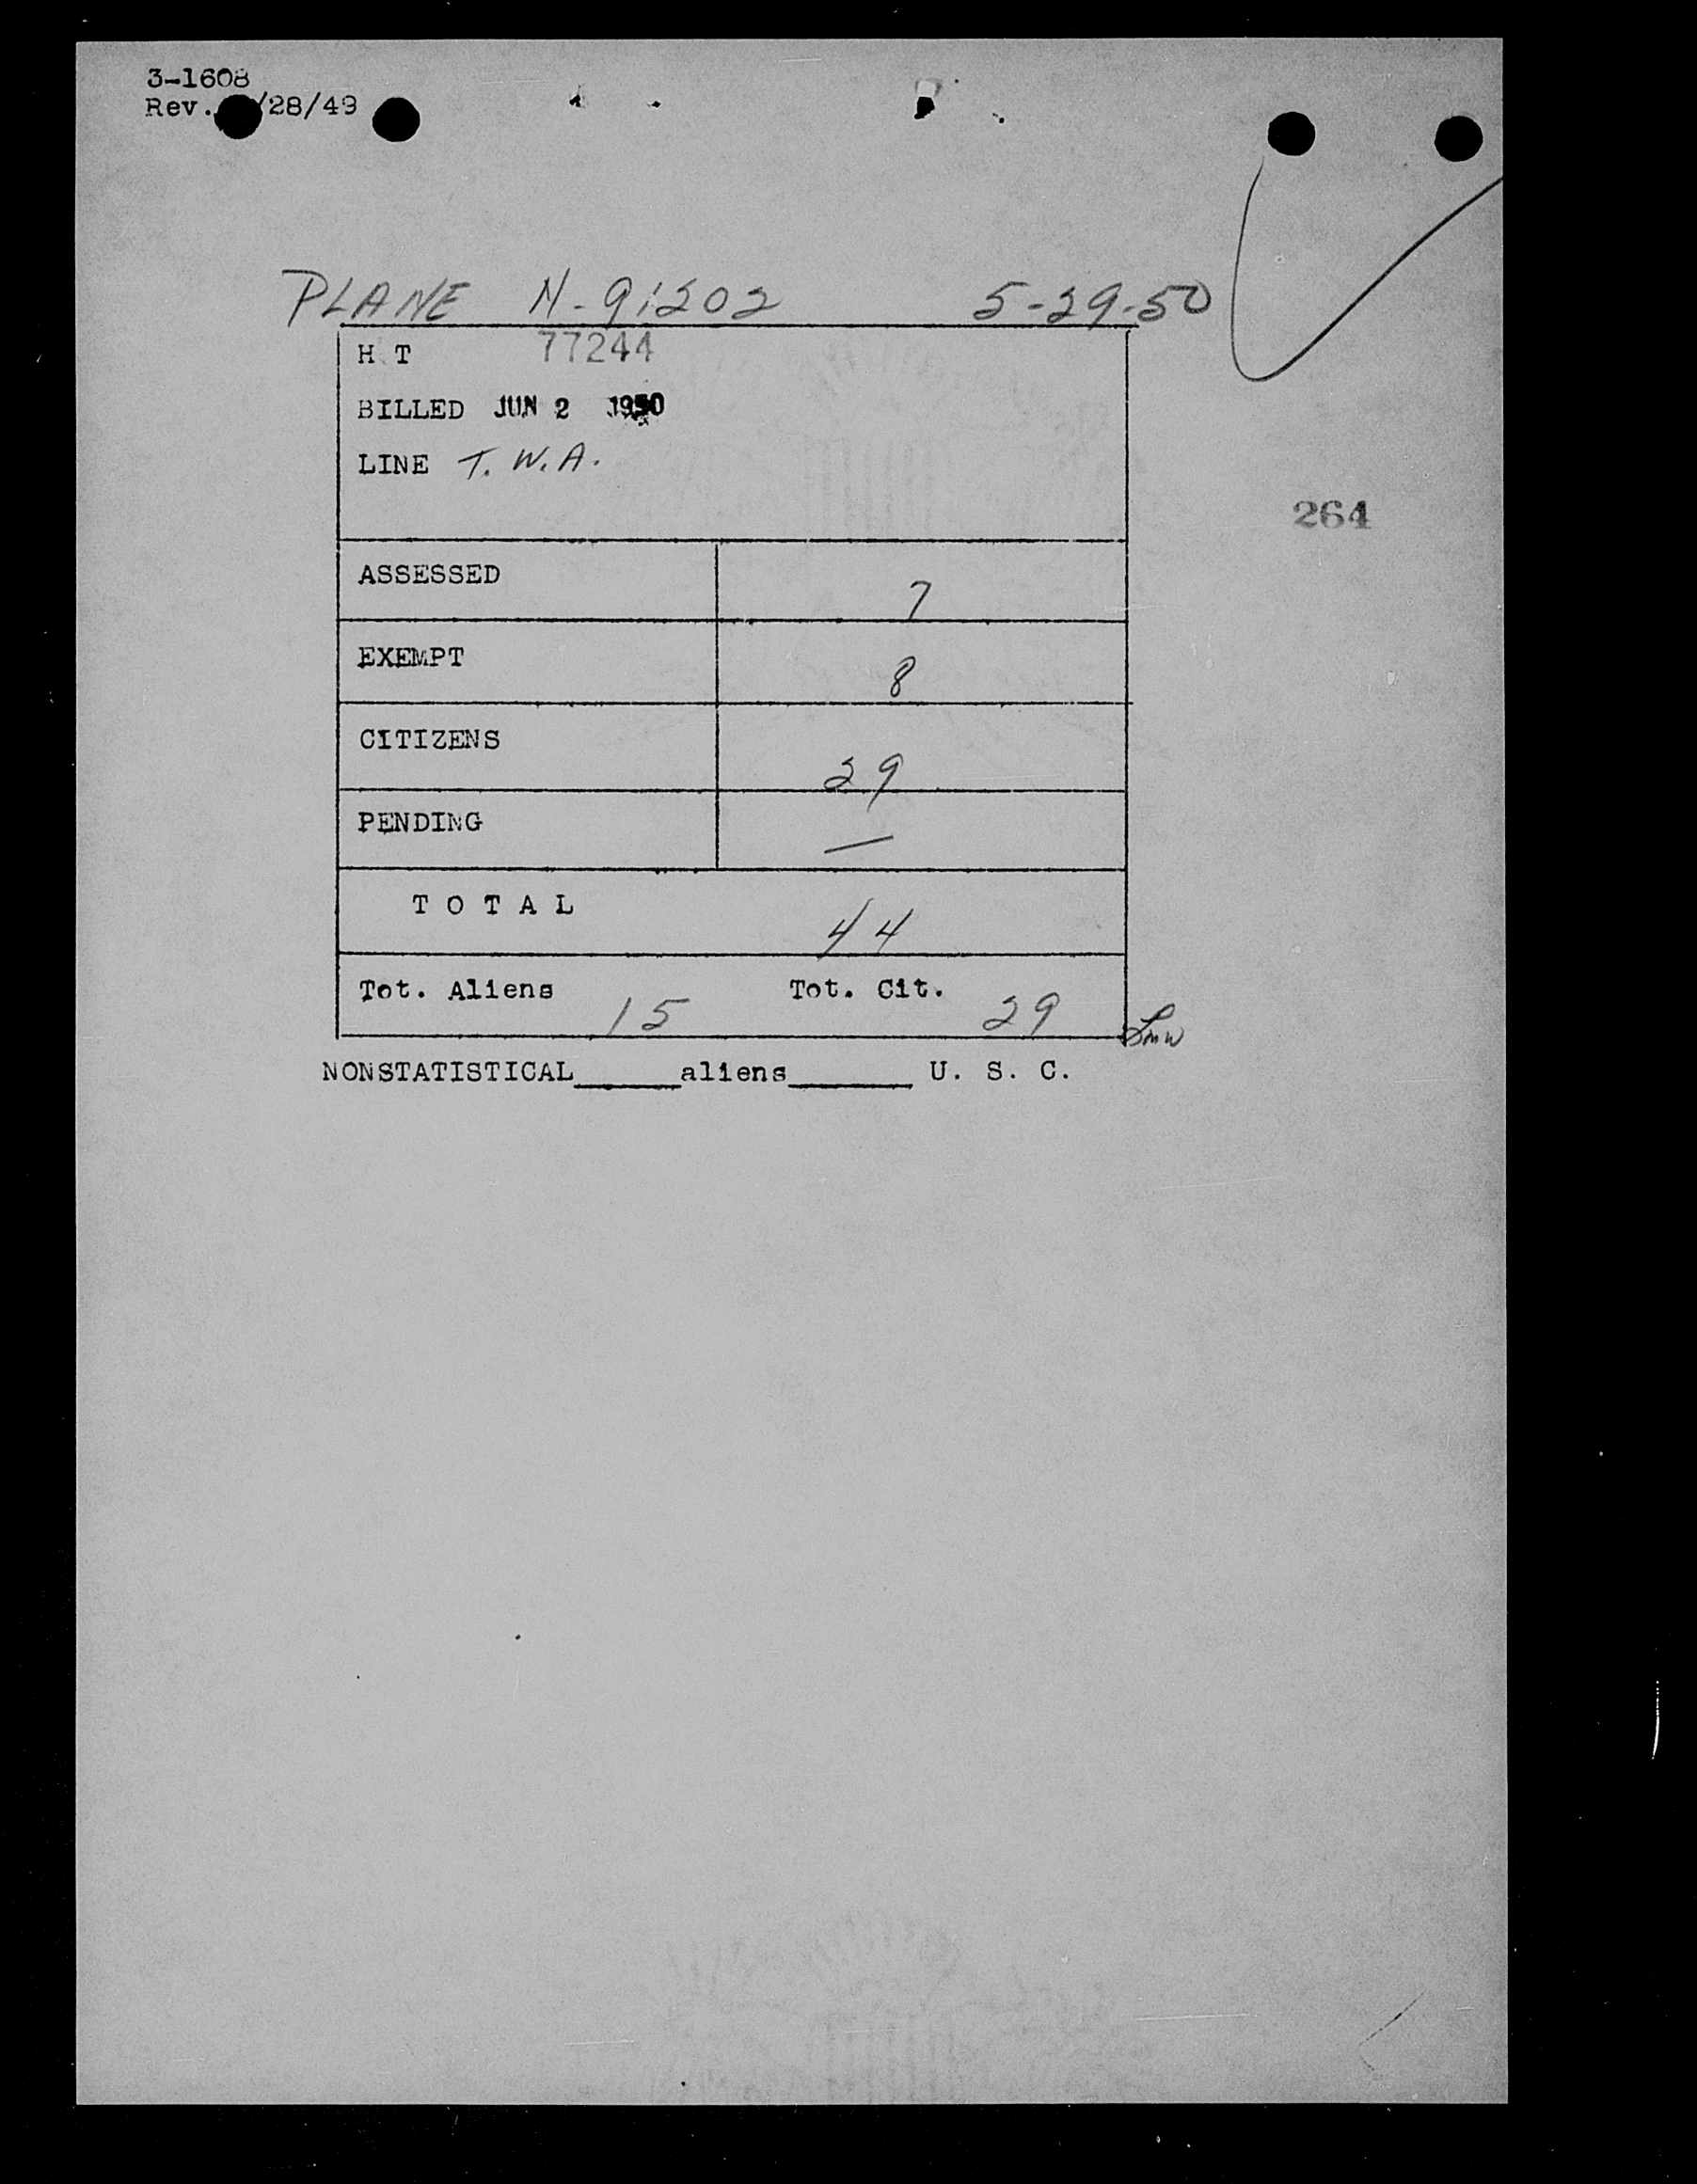 3-1608
Rev. /28/49
PLANE N-91202 5-29-50
H T 77244
BILLED JUN 2 1950
LINE T. W. A.
264
ASSESSED 7
EXEMPT 8
CITIZENS 29
PENDING —
T O T A L 44
Tot. Aliens 15 Tot. Cit. 29
NONSTATISTICAL______aliens_______ U. S. C.